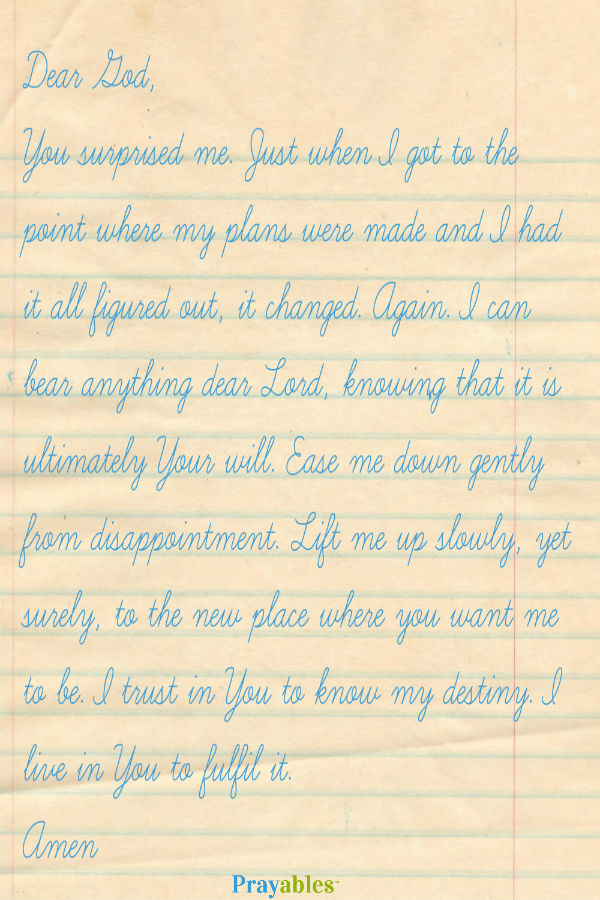 Dear God,
You surprised me. Just when I got to the
point where my plans were made and I had
it all figured out, it changed. Again. I can
bear anything dear Lord, knowing that it is
ultimately Your will. Ease me down gently
from disappointment. Lift me up slowly, yet
surely, to the new place where you want me
to be. I trust in You to know my destiny. I
live in You to fulfil it.
Amen
Prayables™